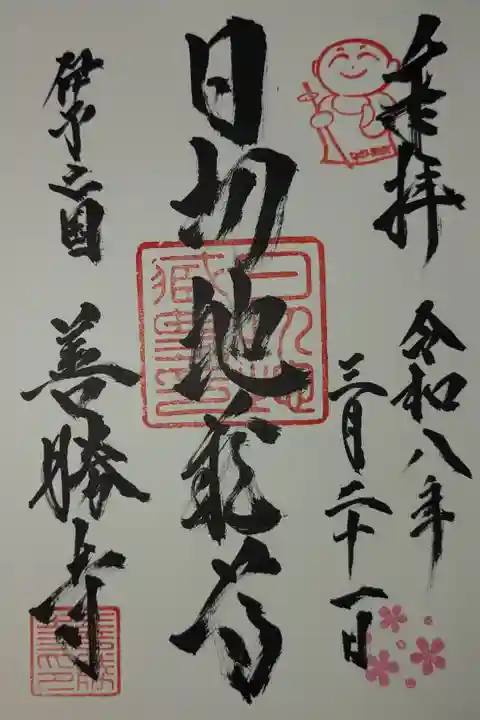 奉拝
令和八年
三月二十一日
日切地蔵尊
伊予之国
善勝寺